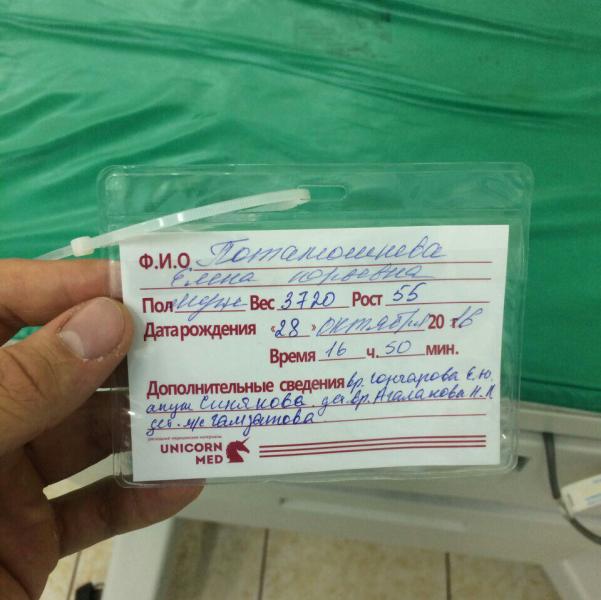 Ф.И.О Поташошнева
Елена Юрьевна
Пол муж Вес 3720 Рост 55
Дата рождения «28» октября 2016
Время 16 ч. 50 мин.
Дополнительные сведения вр. Гончарова Е.Ю.
акуш Синякова. дет.вр. Агаланова Н.П
дет. м/с Гамзатова
UNICORN
MED